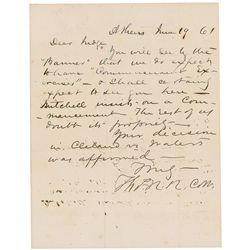 Athens June 19 61
Dear Judge
You will see by the
"Banner" that we do expect
to have "Commencement Ex-
ercises" - & shall certainly
expect to see you here -
Mitchell insists on a Com-
mencement The rest of us
doubt its propriety -
Your decision
in Cleland vs Waters
was approved -
Truly
Thos R. R. Cobb